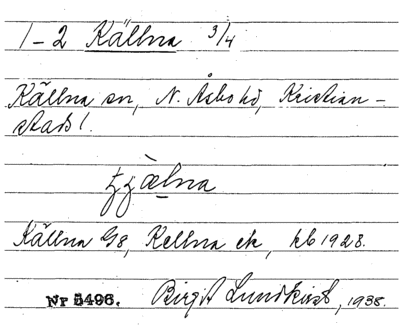 1-2 Källna 3/4
Källna sn, N. Åsbo hd, Kristian-
stads l.
Källna G8, Kellna ek, kb 1928.
Nr 5496. Birgit Lundkvist, 1938.